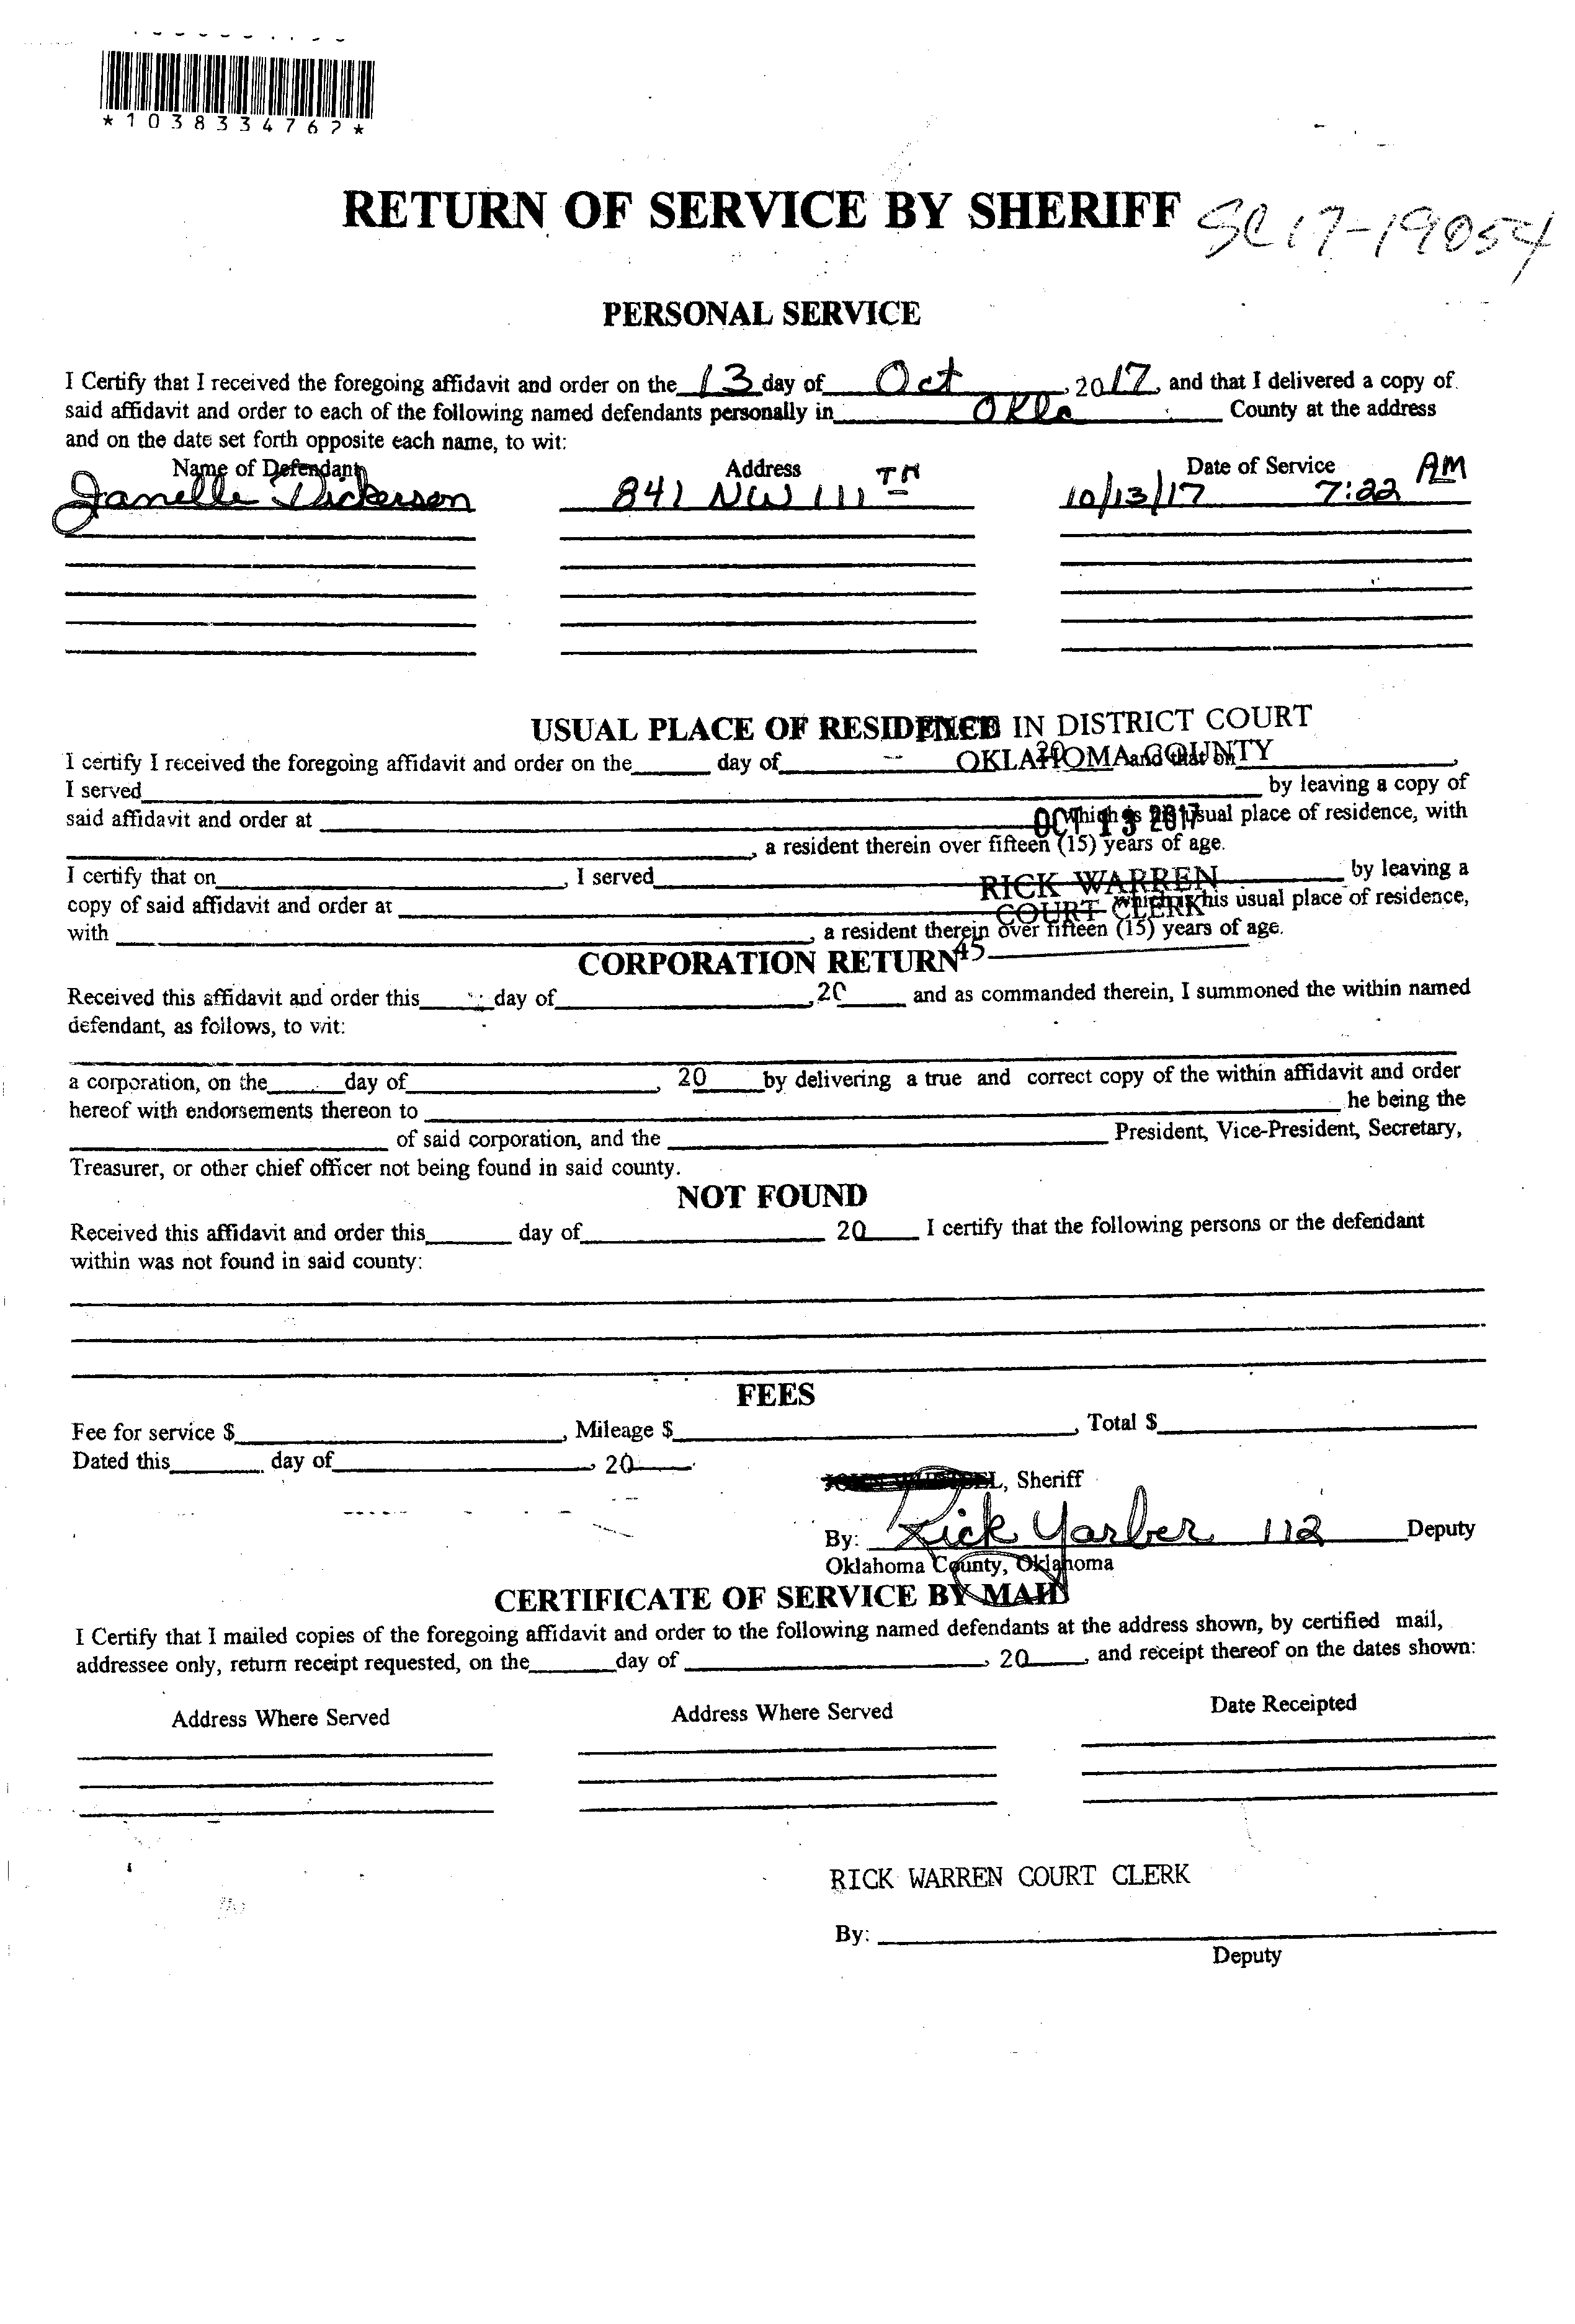 *1038334762*
RETURN OF SERVICE BY SHERIFF SC17-19054
PERSONAL SERVICE
I Certify that I received the foregoing affidavit and order on the 13 day of Oct, 2017, and that I delivered a copy of
said affidavit and order to each of the following named defendants personally in Okla County at the address
and on the date set forth opposite each name, to wit:
Name of Defendant Address Date of Service
Janelle Dickerson 841 NW 111 TH 10/13/17 7:22 AM
USUAL PLACE OF RESIDENCE IN DISTRICT COURT
OKLAHOMA COUNTY
I certify I received the foregoing affidavit and order on the______ day of______, 20 and that on
I served______ by leaving a copy of
OCT 13 2017
said affidavit and order at ______ which is his usual place of residence, with
______, a resident therein over fifteen (15) years of age.
RICK WARREN
I certify that on______, I served______ by leaving a
COURT CLERK
copy of said affidavit and order at ______ which is his usual place of residence,
with ______, a resident therein over fifteen (15) years of age.
45
CORPORATION RETURN
Received this affidavit and order this______ day of______, 20____ and as commanded therein, I summoned the within named
defendant, as follows, to wit:
a corporation, on the______day of______, 20____by delivering a true and correct copy of the within affidavit and order
hereof with endorsements thereon to ______ he being the
______ of said corporation, and the ______ President, Vice-President, Secretary,
Treasurer, or other chief officer not being found in said county.
NOT FOUND
Received this affidavit and order this______ day of______ 20____ I certify that the following persons or the defendant
within was not found in said county:
FEES
Fee for service $______, Mileage $______, Total $______
Dated this______ day of______, 20____.
L, Sheriff
By: Rick Yarber 112 Deputy
Oklahoma County, Oklahoma
CERTIFICATE OF SERVICE BY MAIL
I Certify that I mailed copies of the foregoing affidavit and order to the following named defendants at the address shown, by certified mail,
addressee only, return receipt requested, on the______day of ______, 20____, and receipt thereof on the dates shown:
Address Where Served Address Where Served Date Receipted
RICK WARREN COURT CLERK
By: ______
Deputy